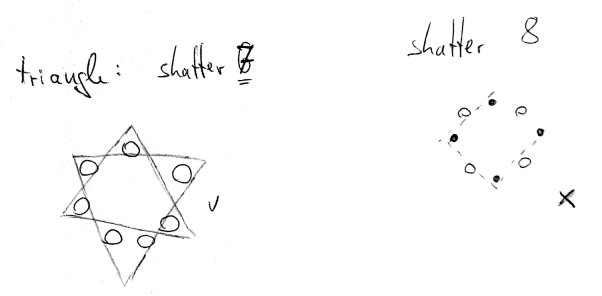 triangle: shatter
shatter 8